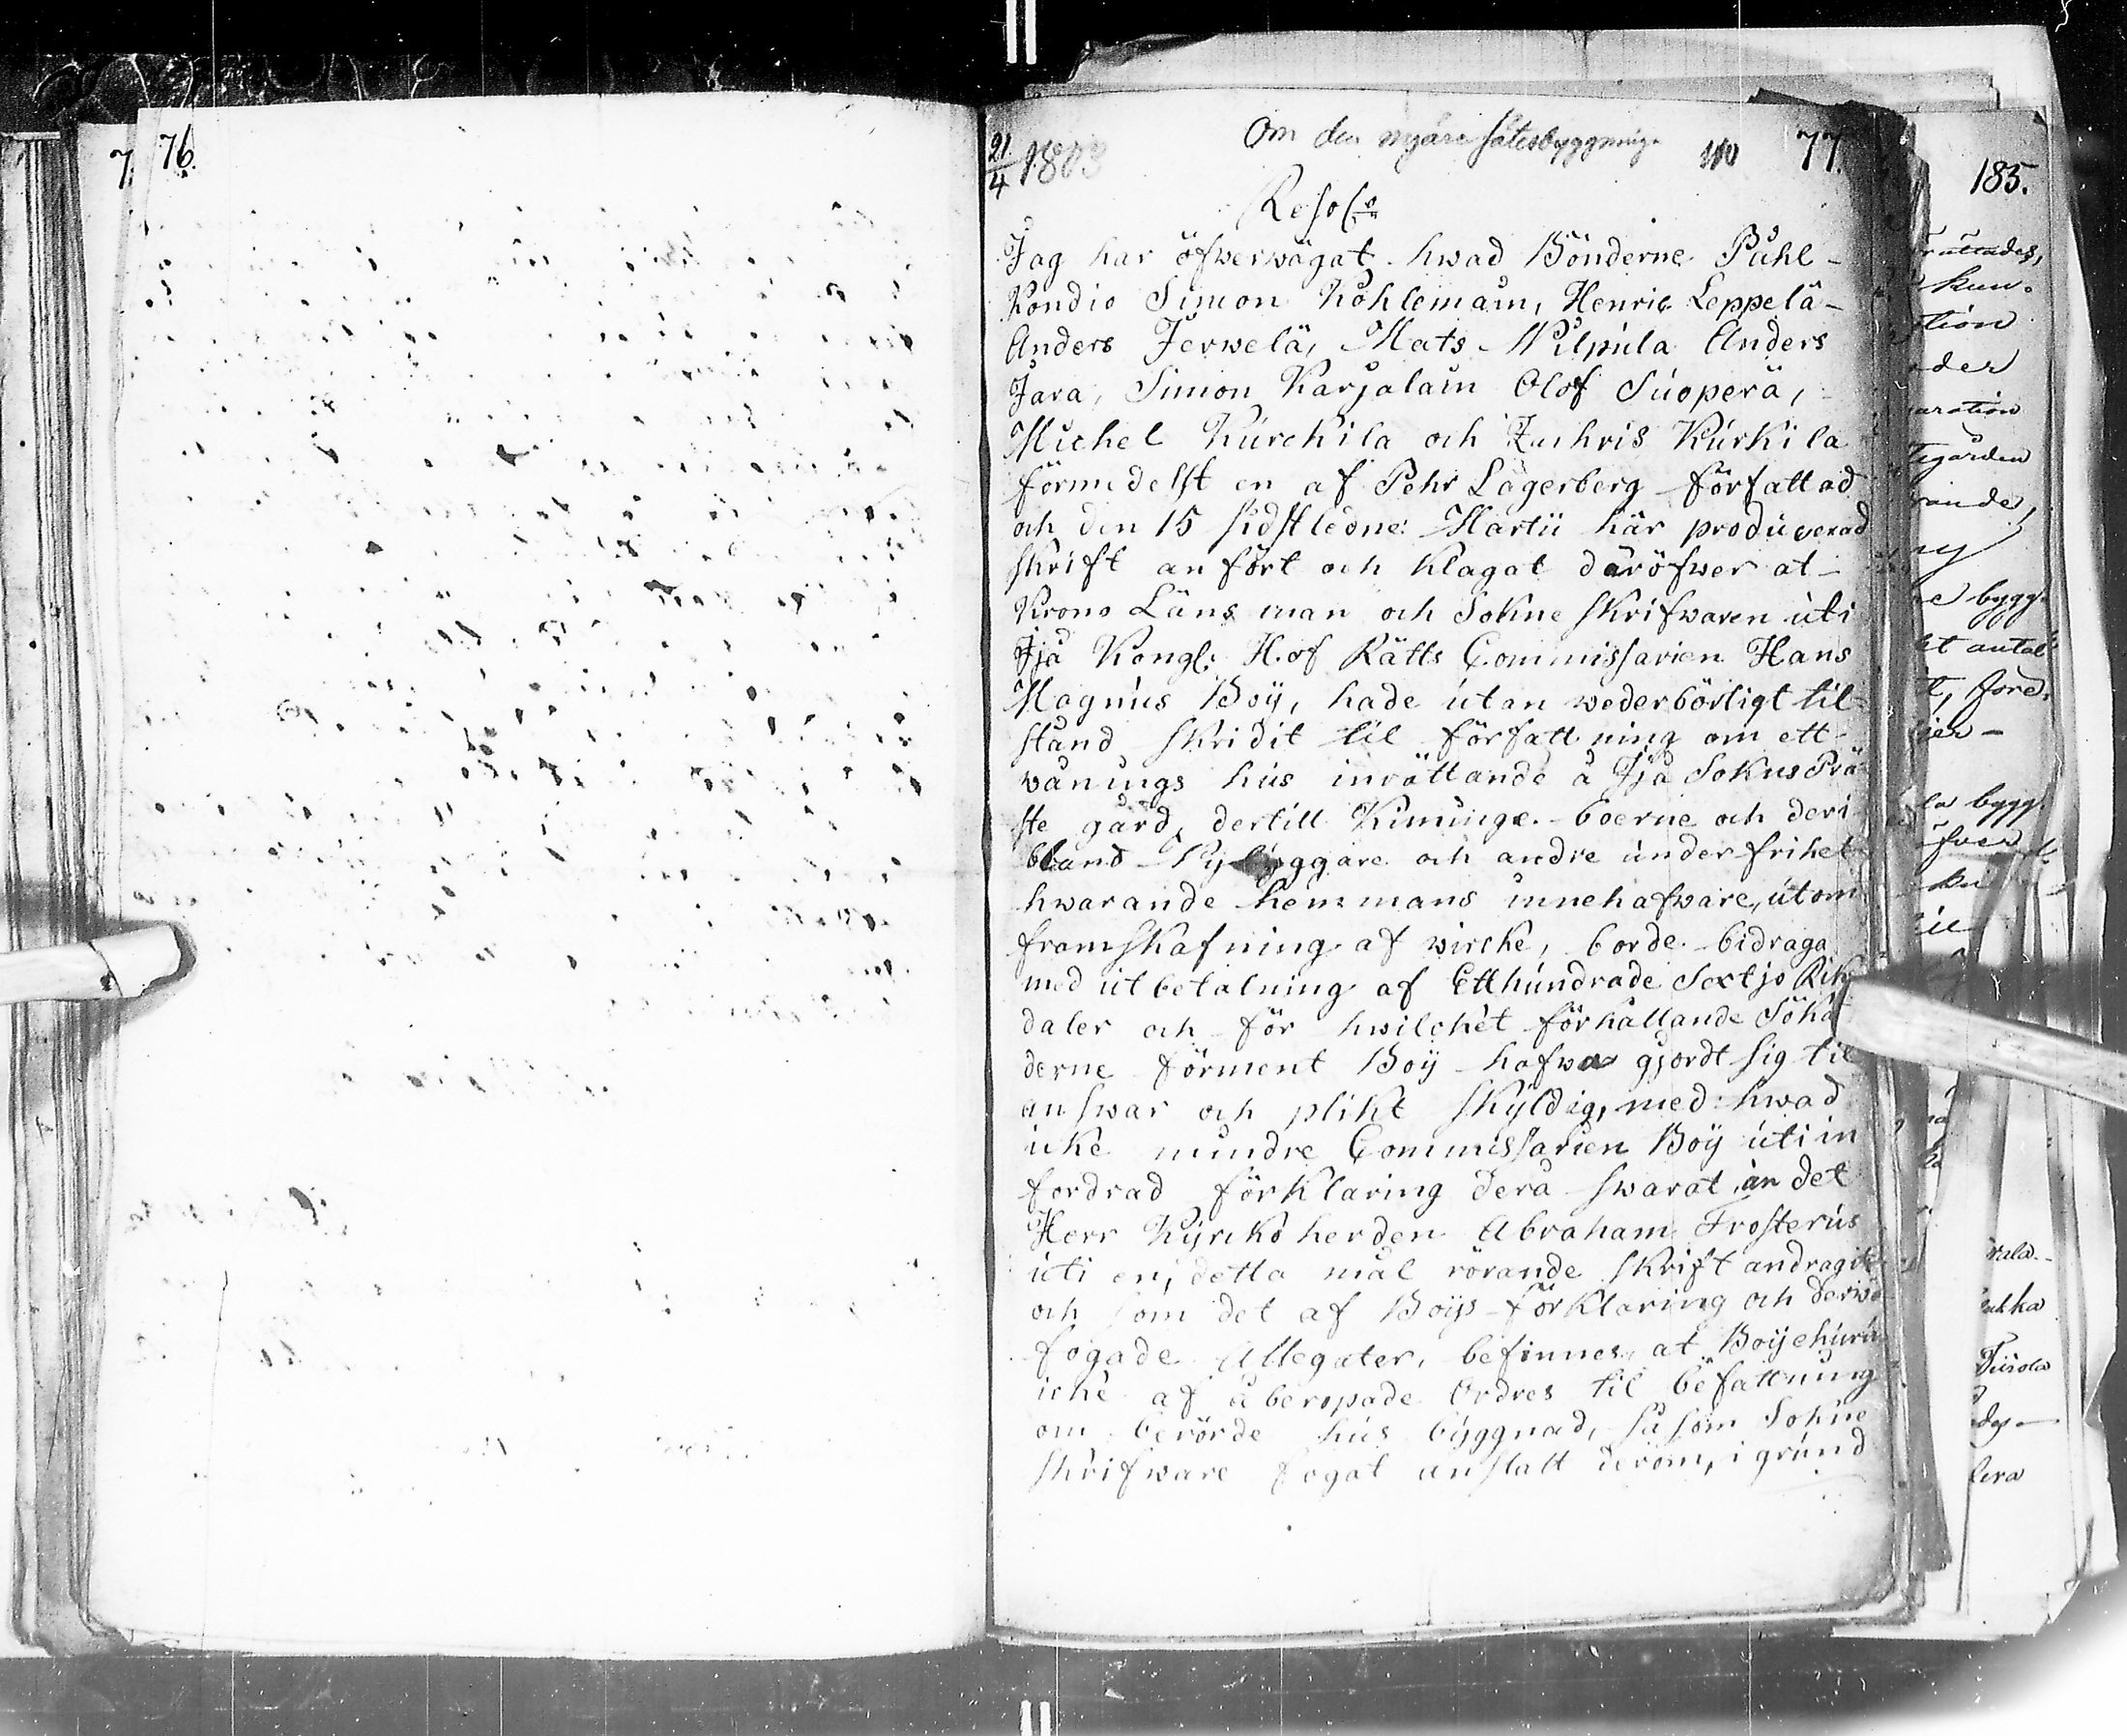 76.
21/4 1803
Om den nyare sätesbyggning
77.
Resol:n
Jag har öfwerwägat hwad Bönderne Påhl
Kondio Simon Kohlemain, Henric Leppelä
Anders Jerwelä, Mats Pilpula Anders
Jara, Simon Karjalain Olof Suoperä,
Michel Kurckila och Zachris Kurkila
förmedelst en af Pehr Lagerberg författad
och den 15 sidstledne Martii här producerad
skrift anfört och klagat däröfwer at
Krono Länsman och Sokne skrifwaren uti
Ijå Kongl: Hof Rätts Commissarien Hans
Magnus Boij, hade utan wederbörligt til-
stånd skridit til författning om ett
wånings hus inrättande å Ijå Sokns Prä-
ste gård, dertill Kiminge boerne och deri-
bland Nybyggare och andre under frihet
hwarande hemmans innehafware, utom
framskafning af wircke, borde bidraga
med utbetalning af Etthundrade Sextjo Riks
daler och för hwilcket förhållande Söka-
derne förment Boij hafwa gjordt sig til
answar och plikt skyldig, med hwad
icke mindre Commissarien Boij uti in
fordrad förklaring dera swarat än det
Herr Kyrckoherden Abraham Frosterus
uti en, detta mål rörande skrift andragit
och som det af Boijs förklaring och derwid
fogade Allegater, befinnes, at Boij ehuru
icke af åberopade Ordres til befattning
om berörde hus byggnad, så som Sokne
skrifware fogat anstalt derom, i grund
185.
kun.
tion
der
aration
tegården
rande,
ny
ne bygg-
et antal
t, före-
jer-
la bygg-
öfver
til
vala-
ukka
lera